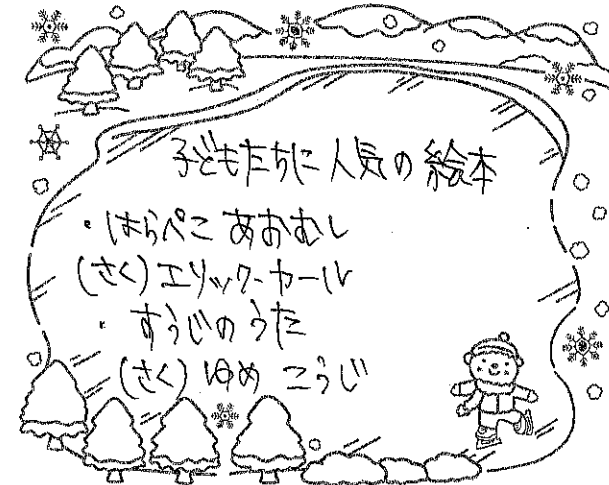 子どもたちに人気の絵本
・はらぺこ あおむし
(さく)エリック・カール
・すうじのうた
(さく)ゆめ こうじ